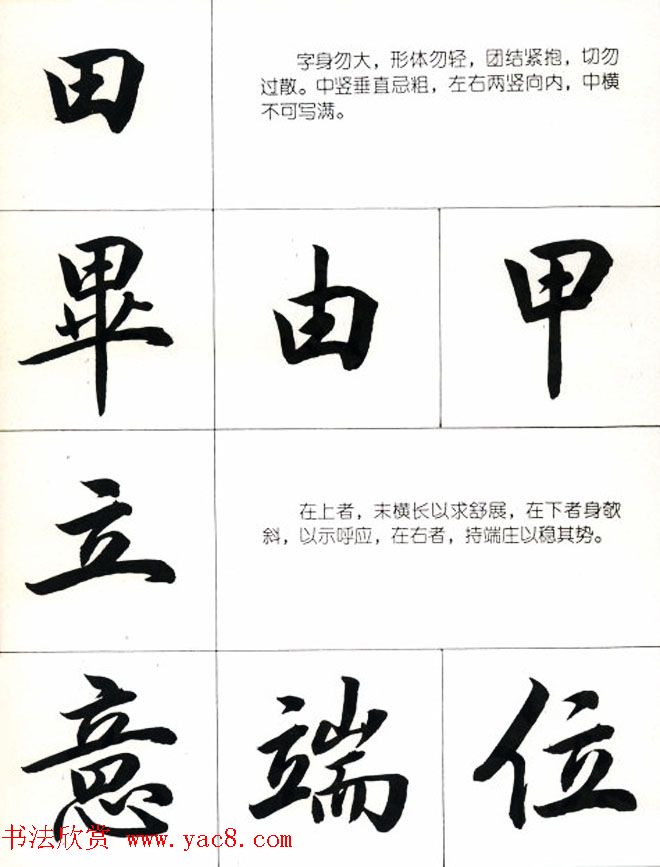 田
字身勿大，形体勿轻，团结紧抱，切勿
过散。中竖垂直忌粗，左右两竖向内，中横
不可写满。
畢 由 甲
立
在上者，末横长以求舒展，在下者身欹
斜，以示呼应，在右者，持端庄以稳其势。
意 端 位
书法欣赏 www.yac8.com